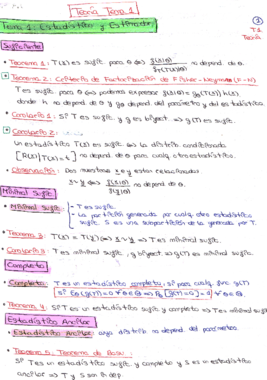 Teoría Tema 1
Tema 1: Estadístico y Estimador
① T1 Teoría
Suficiente
• Teorema 1: T(x) es sufic. para θ ⇔ f(x|θ) / g_T(T(x)|θ) no depend. de θ.
• Teorema 2: Criterio de Factorización de Fisher-Neyman (F-N)
T es sufic. para θ ⇔ podemos expresar f(x|θ) = g_θ(T(x)) h(x)
donde h no depend de θ y g_θ depend del parámetro y del estadístico.
• Corolario 1: Si T es sufic. y g es biyect. ⇒ g(T) es sufic.
• Corolario 2:
Un estadístico T(x) es sufic. ⇔ la distrib. condicionada
[R(x)|T(x)=t] no depend de θ para cualq. otro estadístico.
• Observación: Dos muestras x e y están relacionadas
x ~ y ⇔ f(x|θ) / f(y|θ) no depend de θ.
Minimal Sufic.
• Minimal Sufic.: - T es sufic.
- La partición generada por cualq. otro estadístico
sufic. S es una subpartición de la generada por T.
• Teorema 3: T(x) = T(y) ⇔ x ~ y ⇒ T es minimal sufic.
• Corolario 3: T es minimal sufic. y g biyect ⇒ g(T) es minimal sufic.
Completo
• Completo: T es un estadístico completo, si para cualq. func g(T)
Si E_θ[g(T)] = 0 ∀ θ ∈ Θ ⇒ P_θ[g(T) = 0] = 1 ∀ θ ∈ Θ.
• Teorema 4: Si T es un estadístico sufic. y completo ⇒ T es minimal sufic
Estadístico Ancilar
• Estadístico Ancilar: cuya distrib no depend del parámetro.
• Teorema 5: Teorema de Basu:
Si T es un estadístico sufic. y completo y S es un estadístico
ancilar ⇒ T y S son indep.